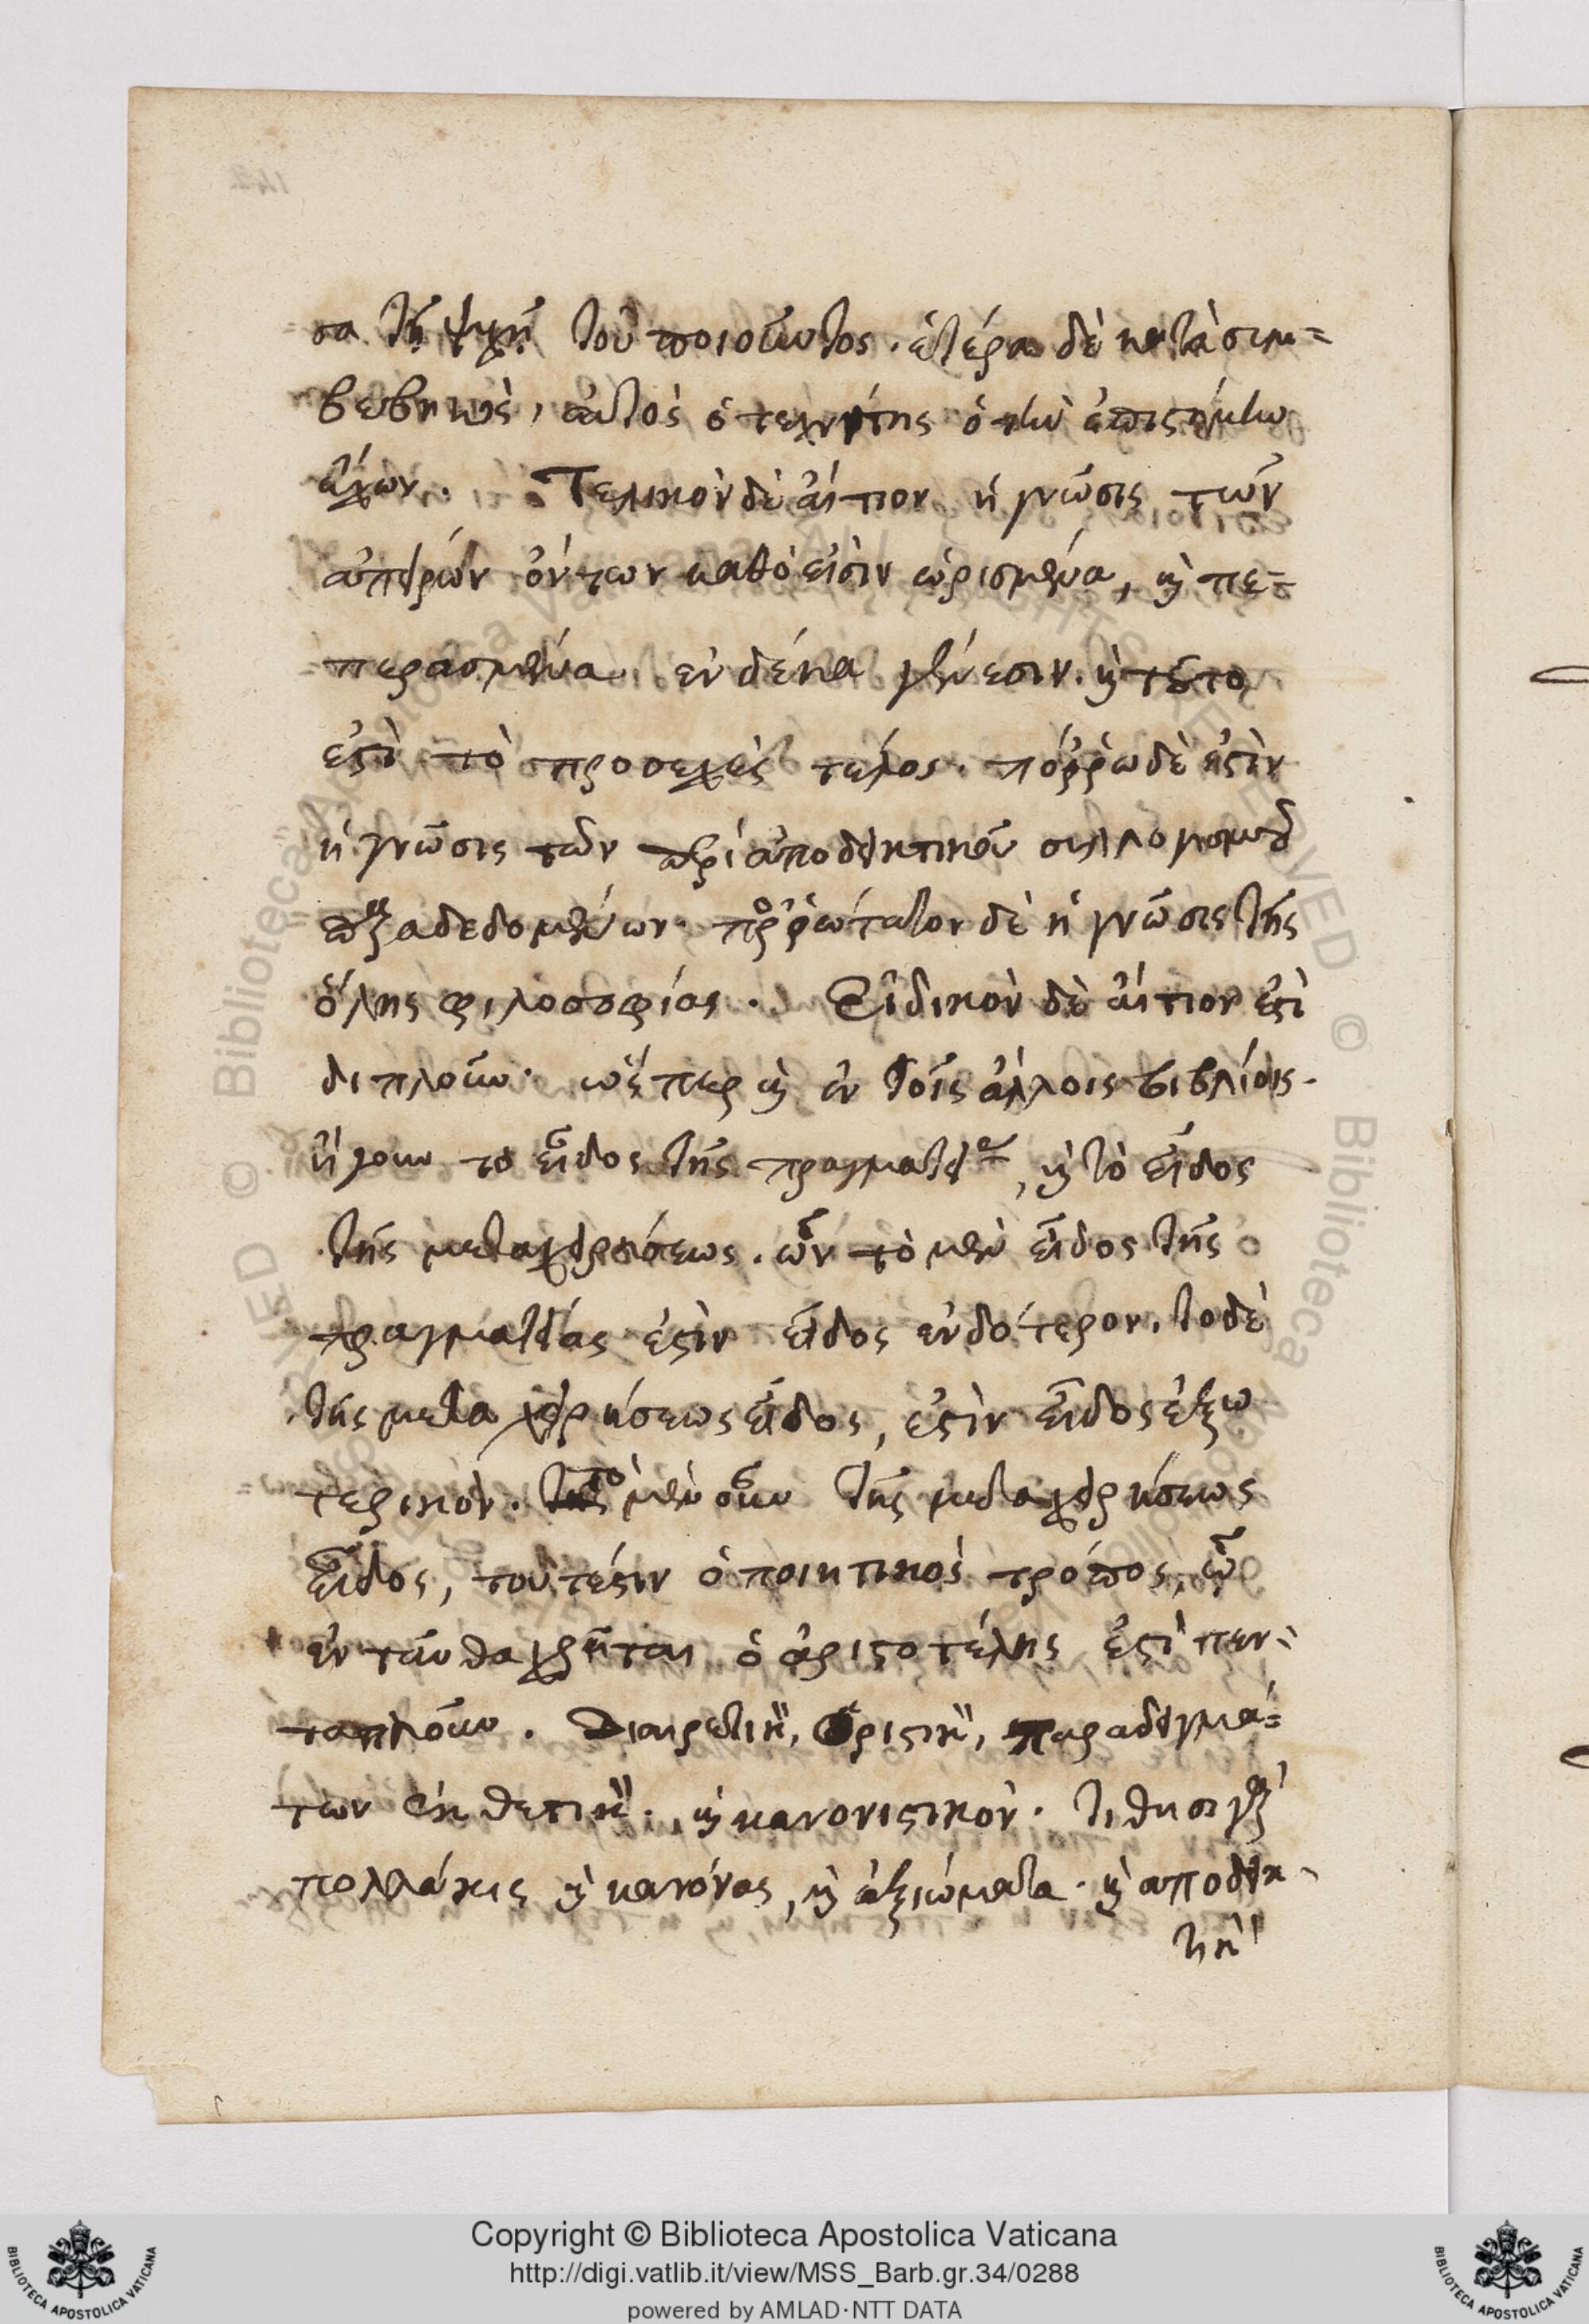 σα τῇ ψυχῇ τοῦ ποιοῦντος. ἑτέρα δὲ κατὰ συμ=
βεβηκὸς, αὐτὸς ὁ τεχνίτης ὁ τὴν ἐπιστήμην
ἔχων. Τελικὸν δὲ αἴτιον ἡ γνῶσις τῶν
ἀπείρων ὄντων καθό εἰσιν ὡρισμένα, καὶ πε=
περασμένα ἐν δέκα γένεσιν. καὶ τοῦτο
ἐστὶ τὸ προσεχὲς τέλος. πόῤῥω δὲ ἐστὶν
ἡ γνῶσις τῶν περὶ ἀποδεικτικοῦ συλλογισμοῦ
παραδεδομένων. ποῤῥώτατον δὲ ἡ γνῶσις τῆς
ὅλης φιλοσοφίας. Εἰδικὸν δὲ αἴτιον ἐστὶ
διπλοῦν. ὥσπερ καὶ ἐν τοῖς ἄλλοις βιβλίοις.
ἤγουν τὸ εἶδος τῆς πραγματείας, καὶ τὸ εἶδος
τῆς μεταχειρήσεως. ὧν τὸ μὲν εἶδος τῆς
πραγματείας ἐστὶν εἶδος ἐνδότερον. τὸ δὲ
τῆς μεταχειρήσεως εἶδος, ἐστὶν εἶδος ἐξω
τερικὸν. τὸ μὲν οὖν τῆς μεταχειρήσεως
εἶδος, τουτέστιν ὁ ποιητικὸς τρόπος, ᾧ
ἐνταῦθα χρῆται ὁ ἀριστοτέλης ἐστὶ πεν=
ταπλοῦν. Διαιρετικὸν, ὁριστικὸν, παραδειγμά=
των ἐκθετικὸν. καὶ κανονιστικὸν. τίθησι γὰρ
πολλάκις καὶ κανόνας, καὶ ἀξιώματα. καὶ ἀποδεικ
τικὸν
Copyright © Biblioteca Apostolica Vaticana
http://digi.vatlib.it/view/MSS_Barb.gr.34/0288
powered by AMLAD·NTT DATA